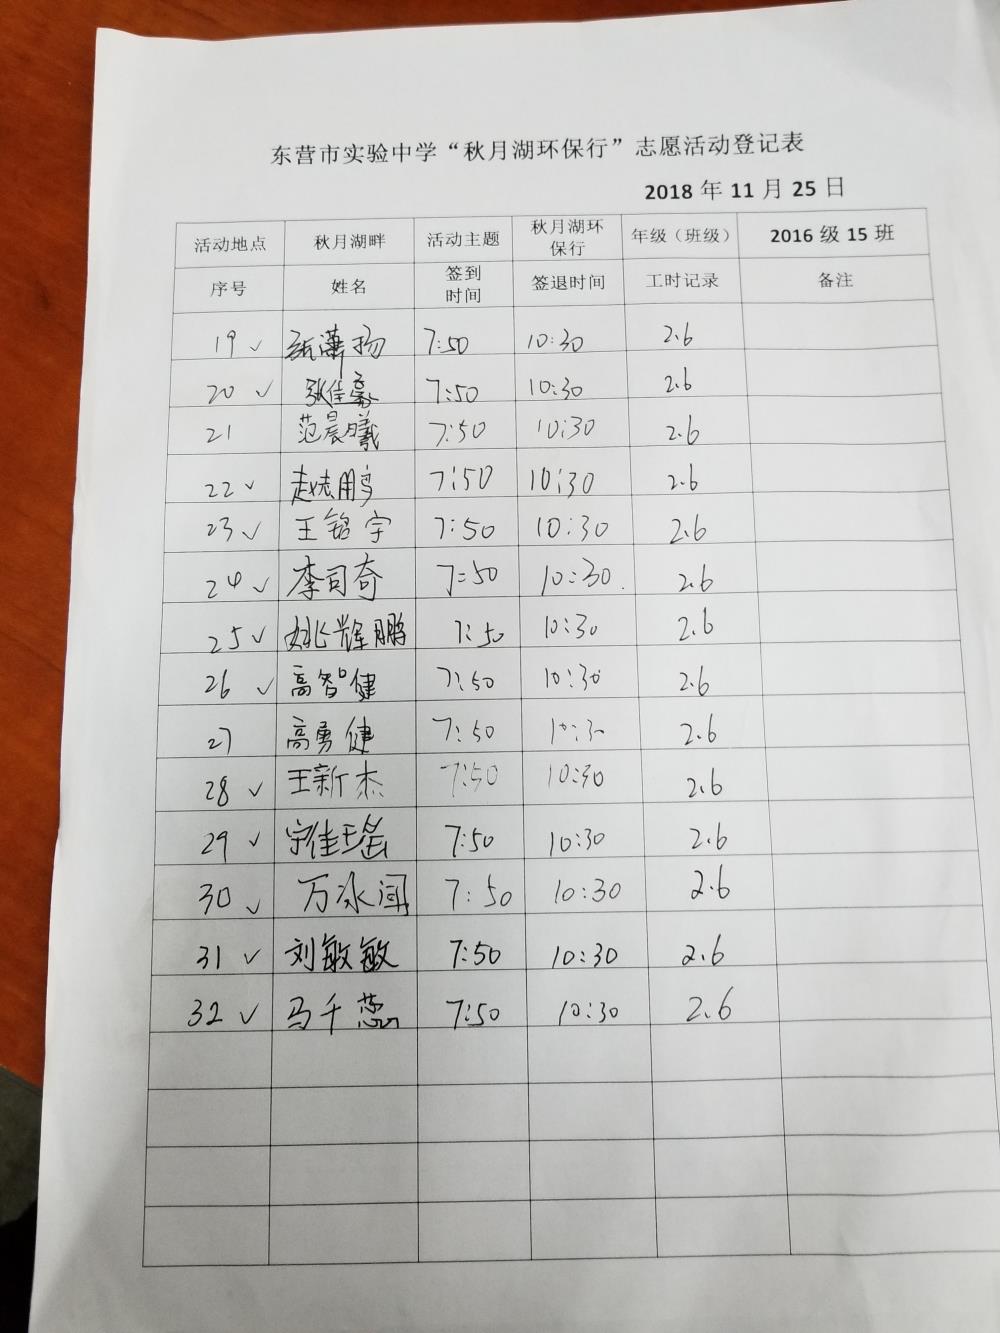 东营市实验中学“秋月湖环保行”志愿活动登记表
2018 年 11 月 25 日
活动地点 秋月湖畔 活动主题 秋月湖环保行 年级（班级） 2016 级 15 班
序号 姓名 签到时间 签退时间 工时记录 备注
19 ✓ 张潇扬 7:50 10:30 2.6
20 ✓ 张佳豪 7:50 10:30 2.6
21 范晨曦 7:50 10:30 2.6
22 ✓ 赵志鹏 7:50 10:30 2.6
23 ✓ 王铭宇 7:50 10:30 2.6
24 ✓ 李司奇 7:50 10:30 2.6
25 ✓ 姚辉鹏 7:50 10:30 2.6
26 ✓ 高智健 7:50 10:30 2.6
27 高勇健 7:50 10:30 2.6
28 ✓ 王新杰 7:50 10:30 2.6
29 ✓ 宁佳瑶 7:50 10:30 2.6
30 ✓ 万冰闻 7:50 10:30 2.6
31 ✓ 刘敏敏 7:50 10:30 2.6
32 ✓ 马千蕊 7:50 10:30 2.6